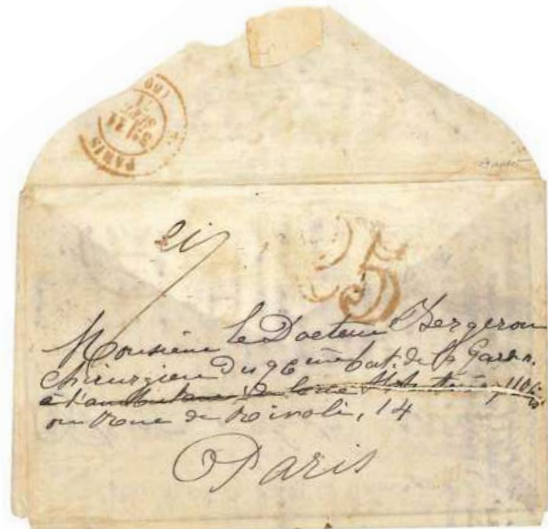 PARIS
(60)
25
Monsieur le Docteur Bergeron
chirurgien du 96 ème bat. de la Garde N.
à l'ambulance de la rue
ou Rue de Rivoli, 14
Paris